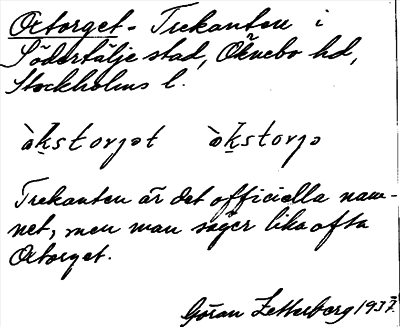 Oxtorget - Trekanten i
Södertälje stad, Öknebo hd,
Stockholms l.
Trekanten är det officiella nam-
net, men man säger lika ofta
Oxtorget.
Göran Zetterberg 1937.